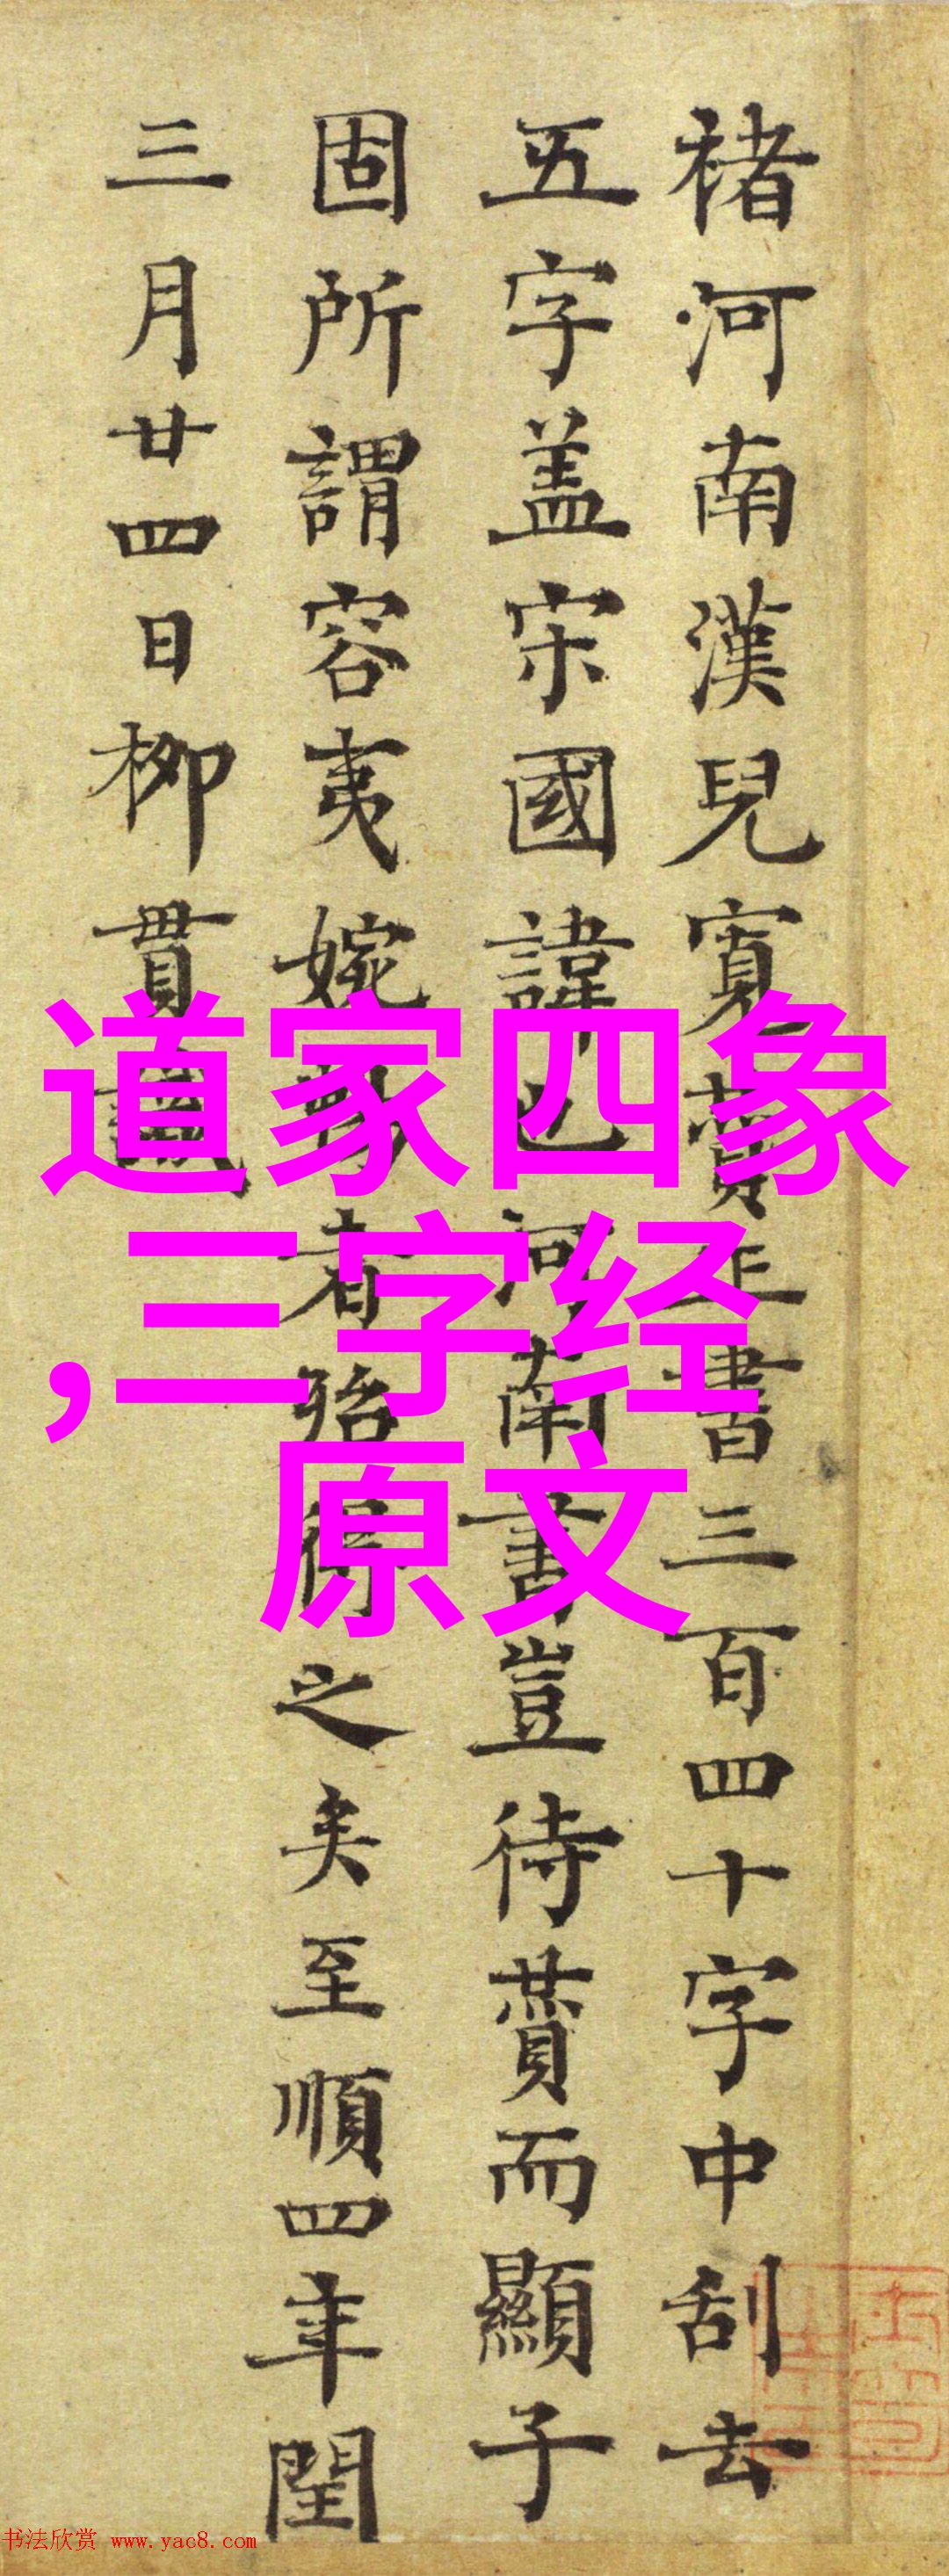 褚河南漢兒寬賛正書三百四十字中刮去
五字盖宋國諱也河南書豈待賛而顯子
固所謂容夷婉暢者殆得之矣至順四年閏
三月廿四日柳貫識
道家四象
,三字经
原文
书法欣赏 www.yac8.com